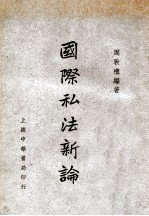 阮毅成編著
國際私法新論
上海中華書局印行